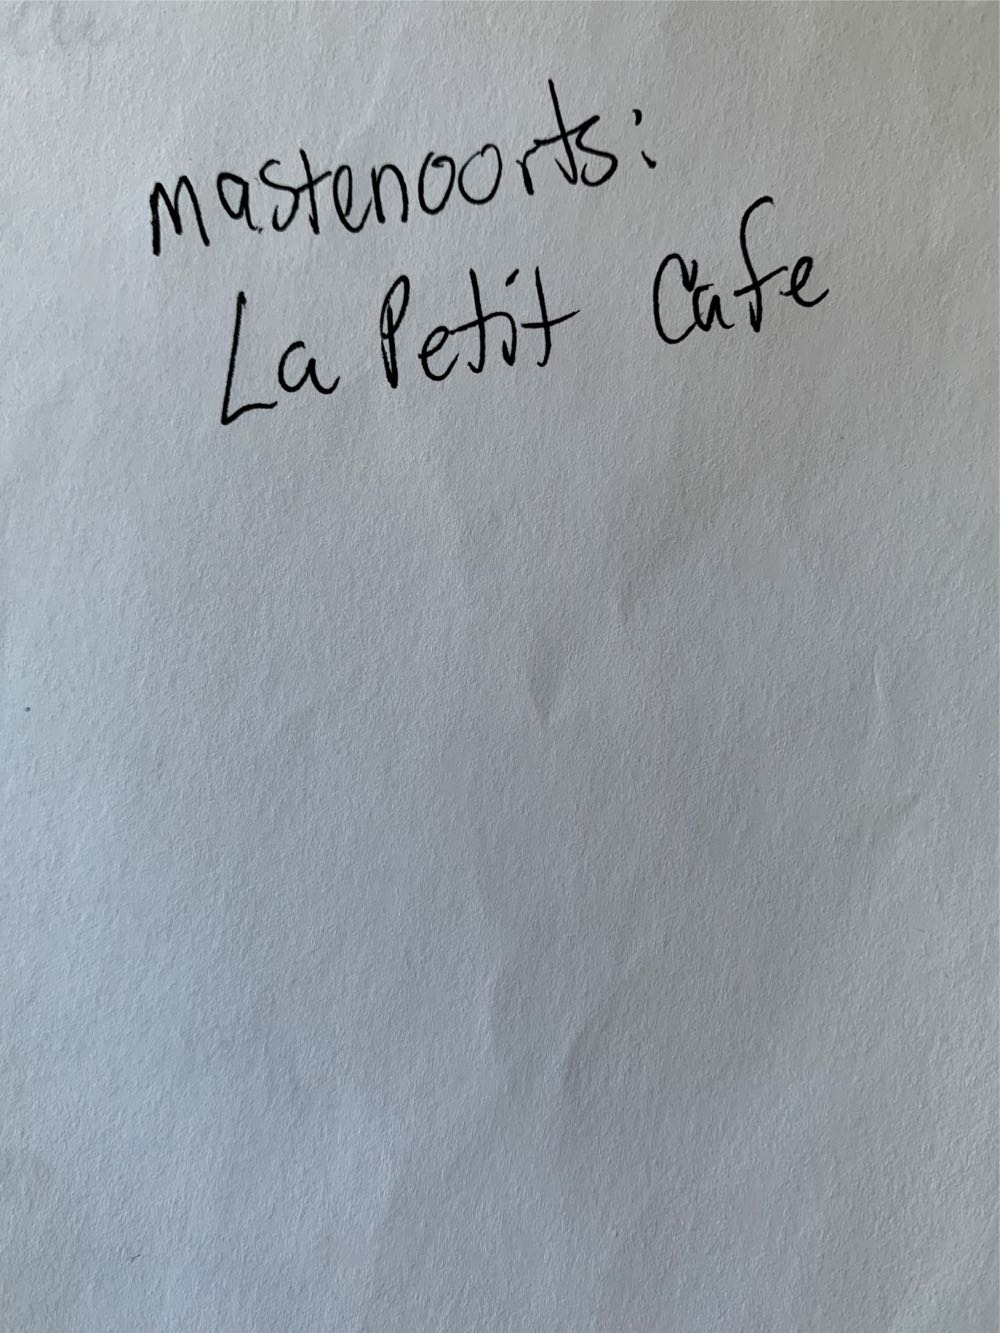 mastenoorts:
La Petit Cafe